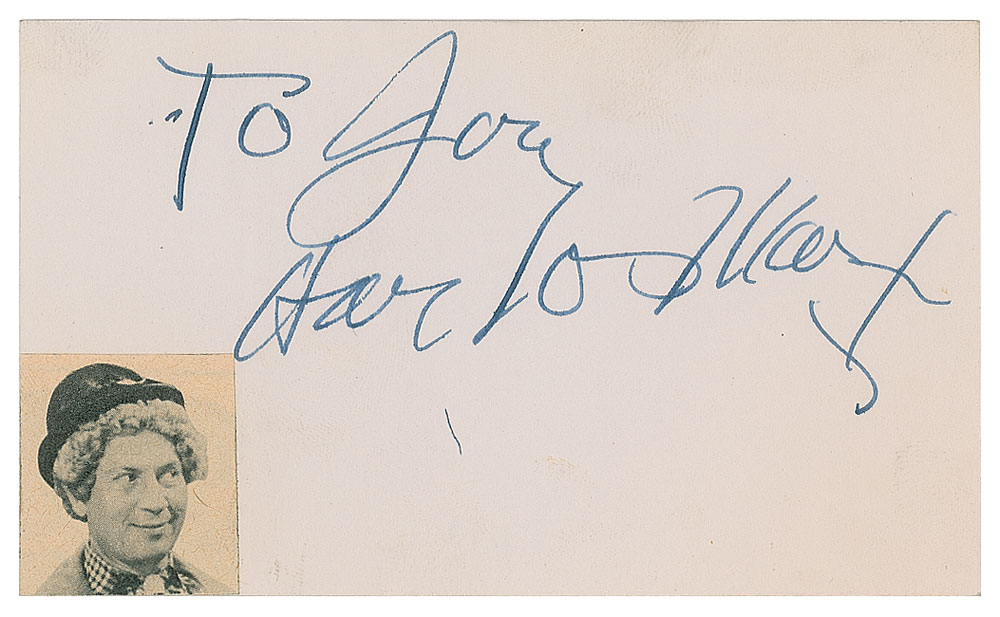 To Jon
Harpo Marx